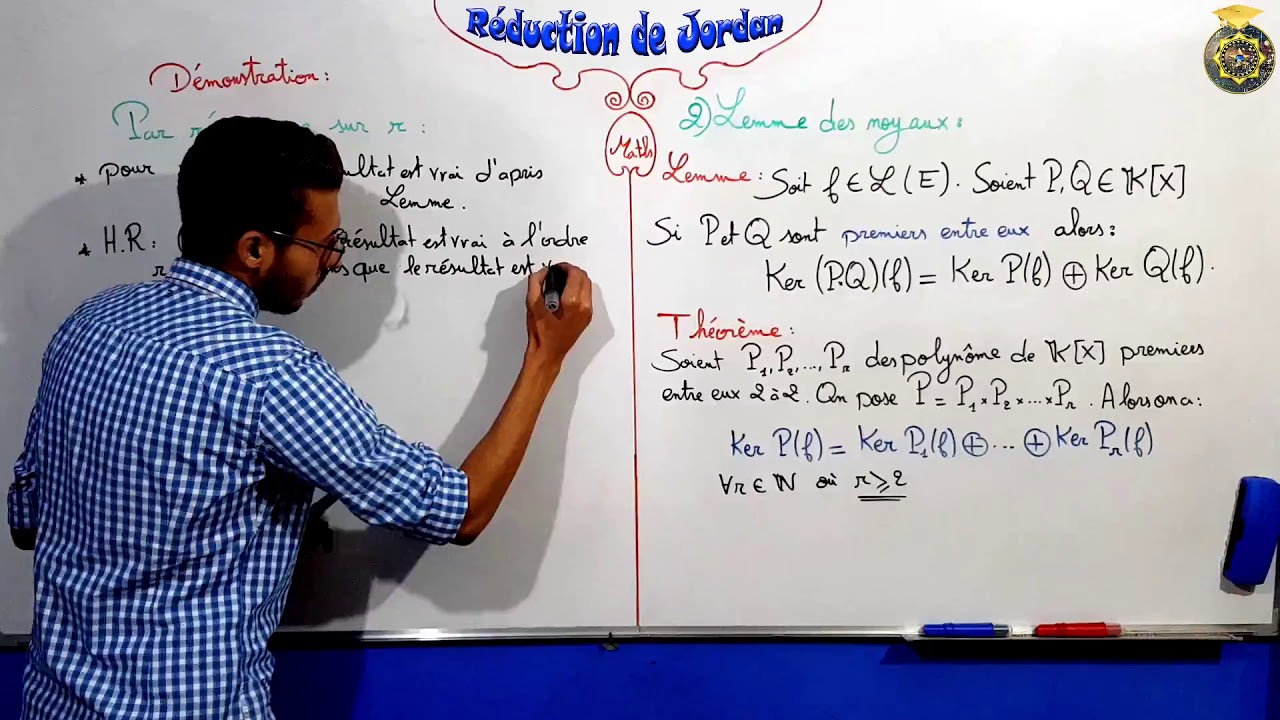 Réduction de Jordan
Démonstration:
Par sur r:
* pour est vrai d'après
Lemme.
* H.R: Résultat est vrai à l'ordre
r que le résultat est
Maths
2) Lemme des noyaux:
Lemme: Soit f ∈ ℒ(E). Soient P, Q ∈ 𝕂[X]
Si P et Q sont premiers entre eux alors:
Ker (P.Q)(f) = Ker P(f) ⊕ Ker Q(f).
Théorème:
Soient P₁, P₂, ..., Pᵣ des polynôme de 𝕂[X] premiers
entre eux 2 à 2. On pose P = P₁ × P₂ × ... × Pᵣ. Alors on a:
Ker P(f) = Ker P₁(f) ⊕ ... ⊕ Ker Pᵣ(f)
∀r ∈ ℕ où r ⩾ 2